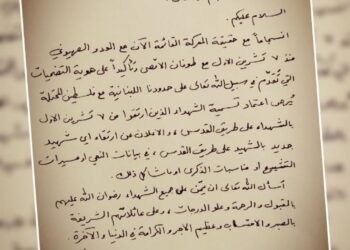 السلام عليكم.
انسجاماً مع حقيقة المعركة القائمة الآن مع العدو الصهيوني
منذ ٧ تشرين الاول مع طوفان الأقصى وتأكيداً على هوية التضحيات
التي تُقدَّم في سبيل الله تعالى على حدودنا اللبنانية مع فلسطين المحتلة
يُرجى اعتماد تسمية الشهداء الذين ارتقوا من ٧ تشرين الاول
بالشهداء على طريق القدس، والاعلان عن ارتقاء اي شهيد
جديد بالشهيد على طريق القدس، في بيانات النعي او مسيرات
التشييع او مناسبات الذكرى او ما شاكل ذلك.
أسأل الله تعالى ان يمنّ على جميع الشهداء رضوان الله عليهم
بالقبول والرحمة وعلو الدرجات، وعلى عائلاتهم الشريفة
بالصبر والاحتساب وعظيم الاجر والكرامة في الدنيا والآخرة.